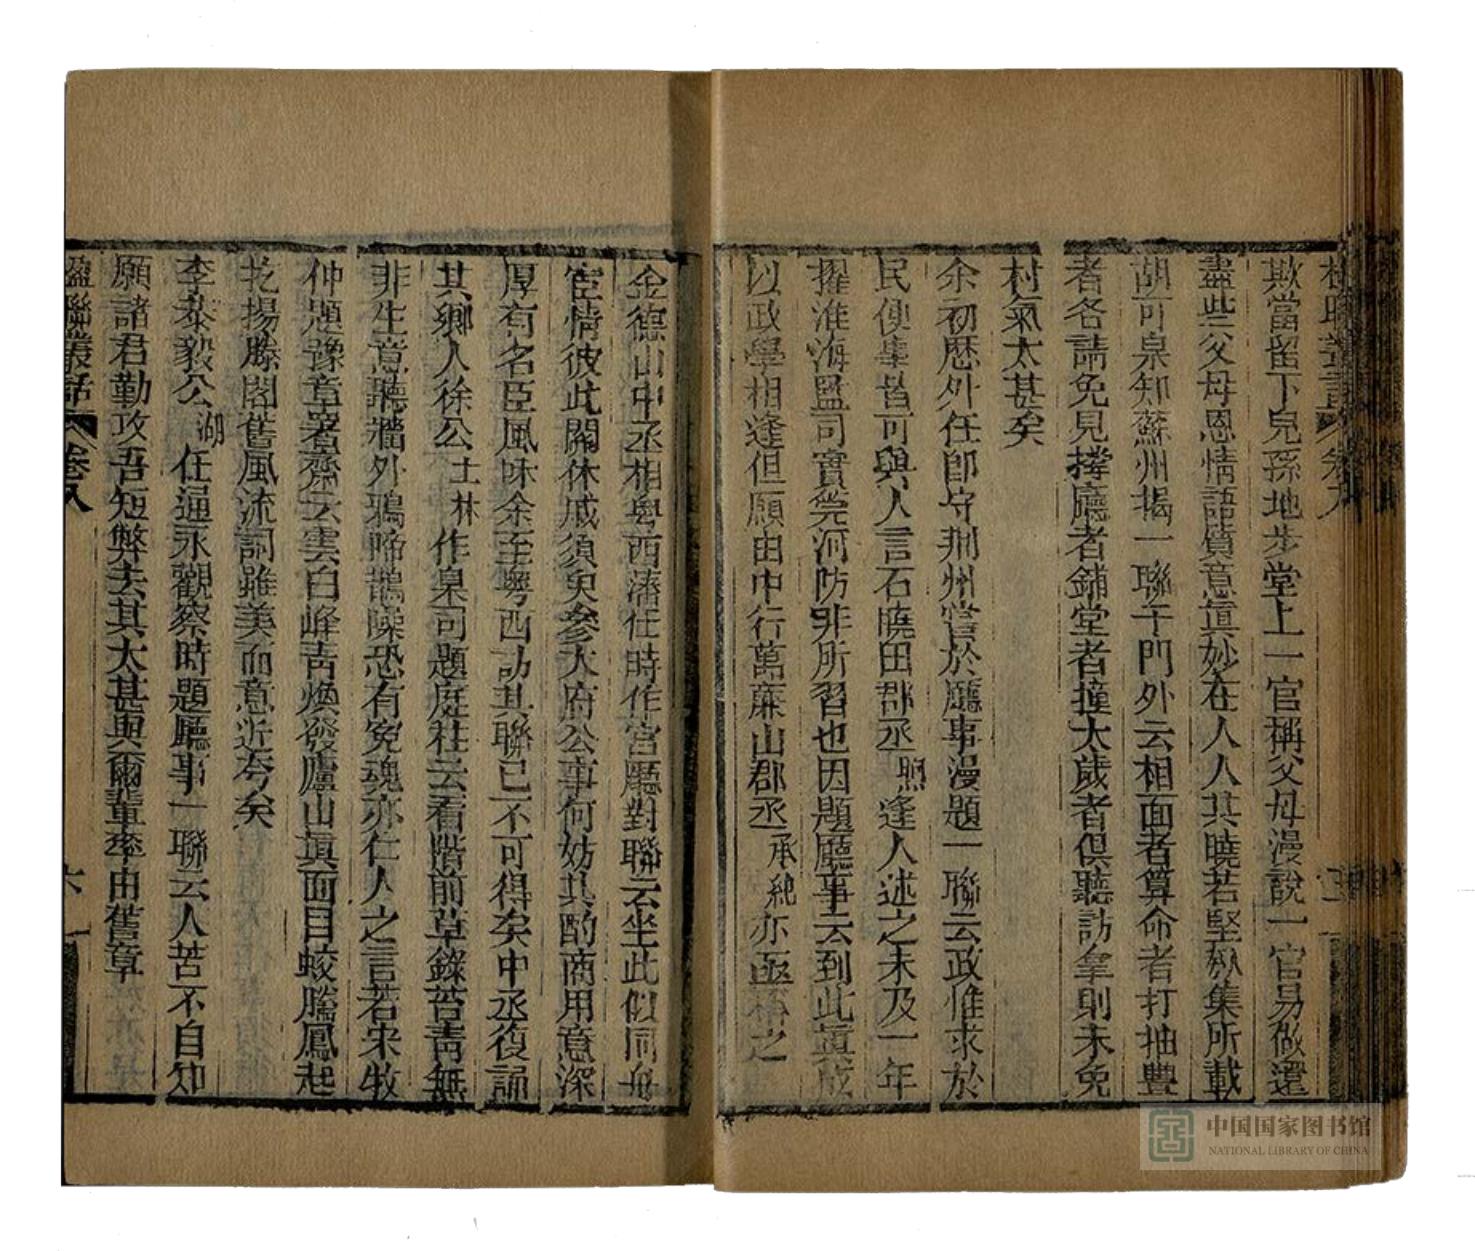 欺當留下兒孫地步堂上一官稱父母漫說一官易做還
盡些父母恩情語質意眞妙在人人共曉若堅瓠集所載
胡可泉知蘇州揭一聯于門外云相面者算命者打抽豐
者各請免見撐廳者鋪堂者撞太歲者俱聽訪拿則未免
村氣太甚矣
余初歷外任卽守荆州嘗於廳事漫題一聯云政惟求於
民便事皆可與人言石曉田郡丞煦逢人述之未及一年
擢淮海監司實筦河防非所習也因題廳事云到此眞成
以政學相逢但願由中行萬廉山郡丞承紀亦亟稱之
金德山中丞相粤西藩任時作官廳對聯云坐此似同舟
宦情彼此關休戚須臾參大府公事何妨共酌商用意深
厚有名臣風味余至粤西訪其聯已不可得矣中丞復誦
其鄉人徐公士林作臬司題庭柱云看階前草綠苔靑無
非生意聽牆外鴉啼鵲噪恐有寃魂亦仁人之言若宋牧
仲題豫章署齋云雲白峰靑煥發廬山眞面目蛟騰鳳起
乾揚滕閣舊風流詞雖美而意近夸矣
李恭毅公湖任通永觀察時題廳事一聯云人苦不自知
願諸君勤攻吾短弊去其太甚與爾輩率由舊章
楹聯叢話 卷八
六
中国国家图书馆
NATIONAL LIBRARY OF CHINA